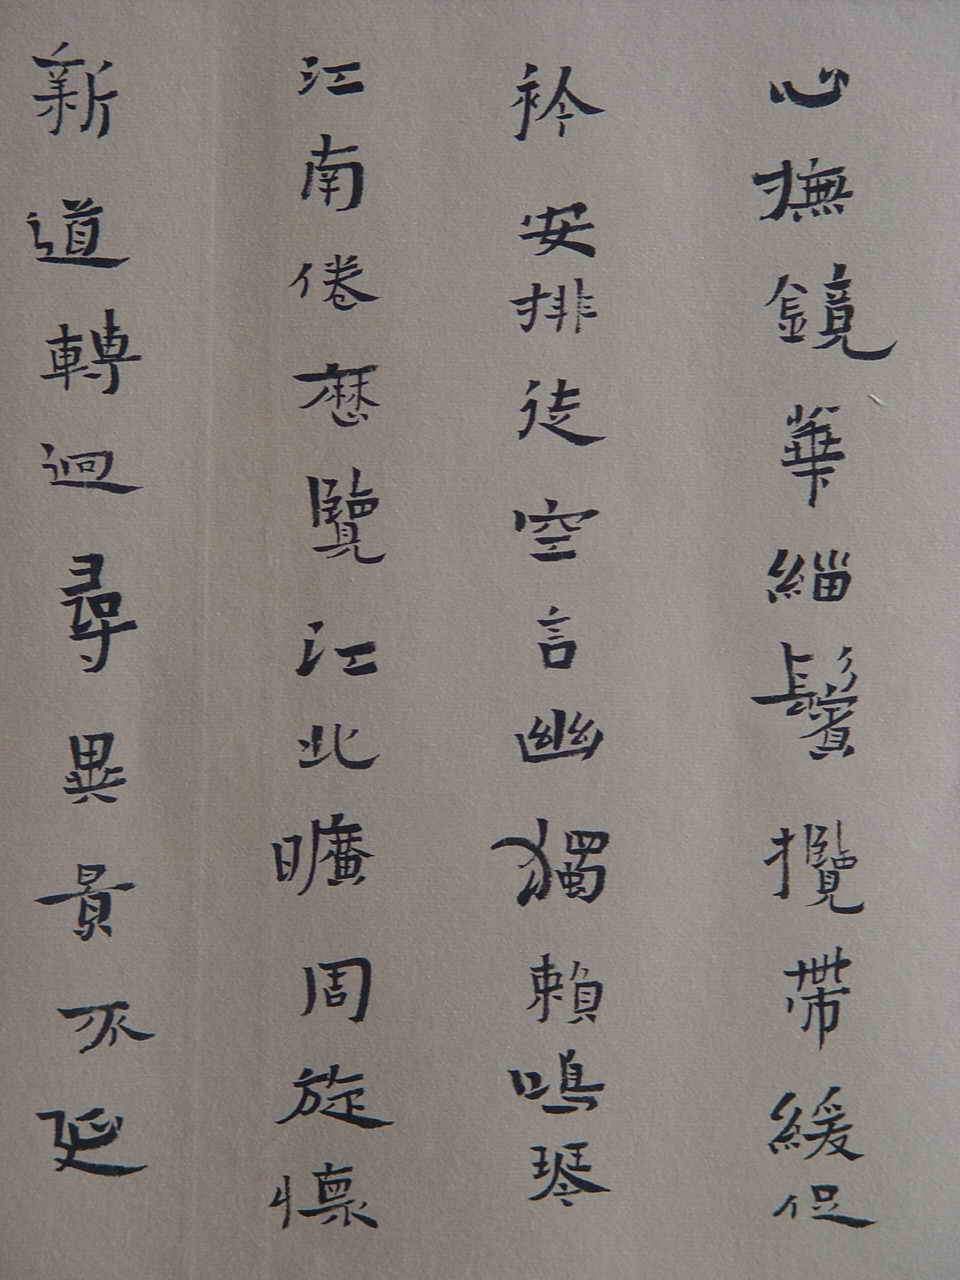 心撫鏡華緇鬢攬帶緩促
衿安排徒空言幽獨賴鳴琴
江南倦歷覽江北曠周旋懷
新道轉迥尋異景不延